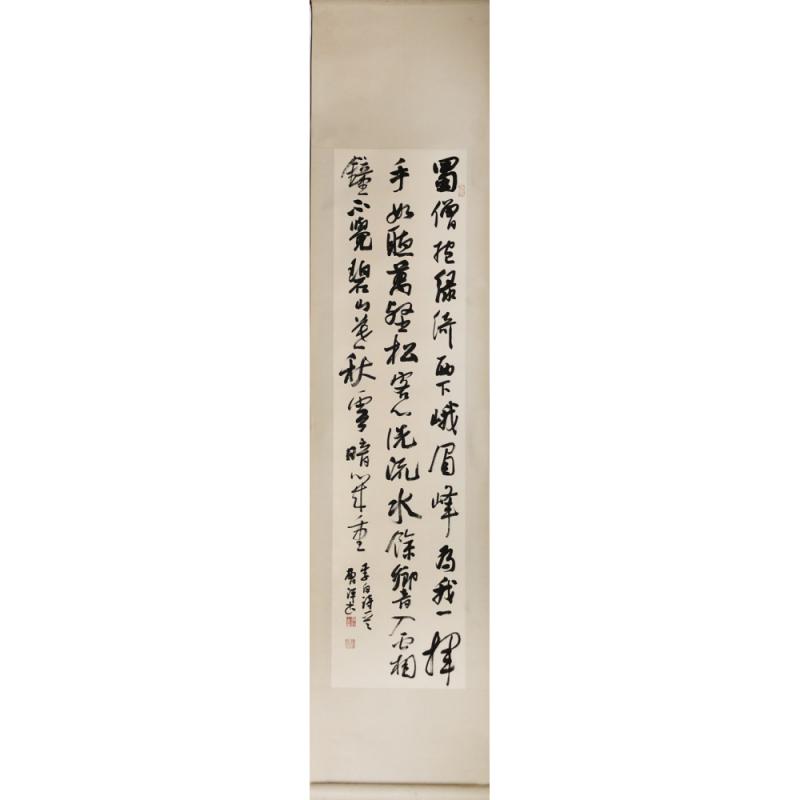 蜀僧抱綠綺西下峨眉峰為我一揮
手如聽萬壑松客心洗流水餘響入霜
鐘不覺碧山暮秋雲暗幾重
李白詩一首